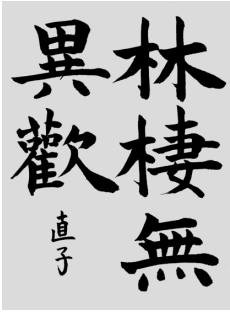 林棲無
異歡
直子